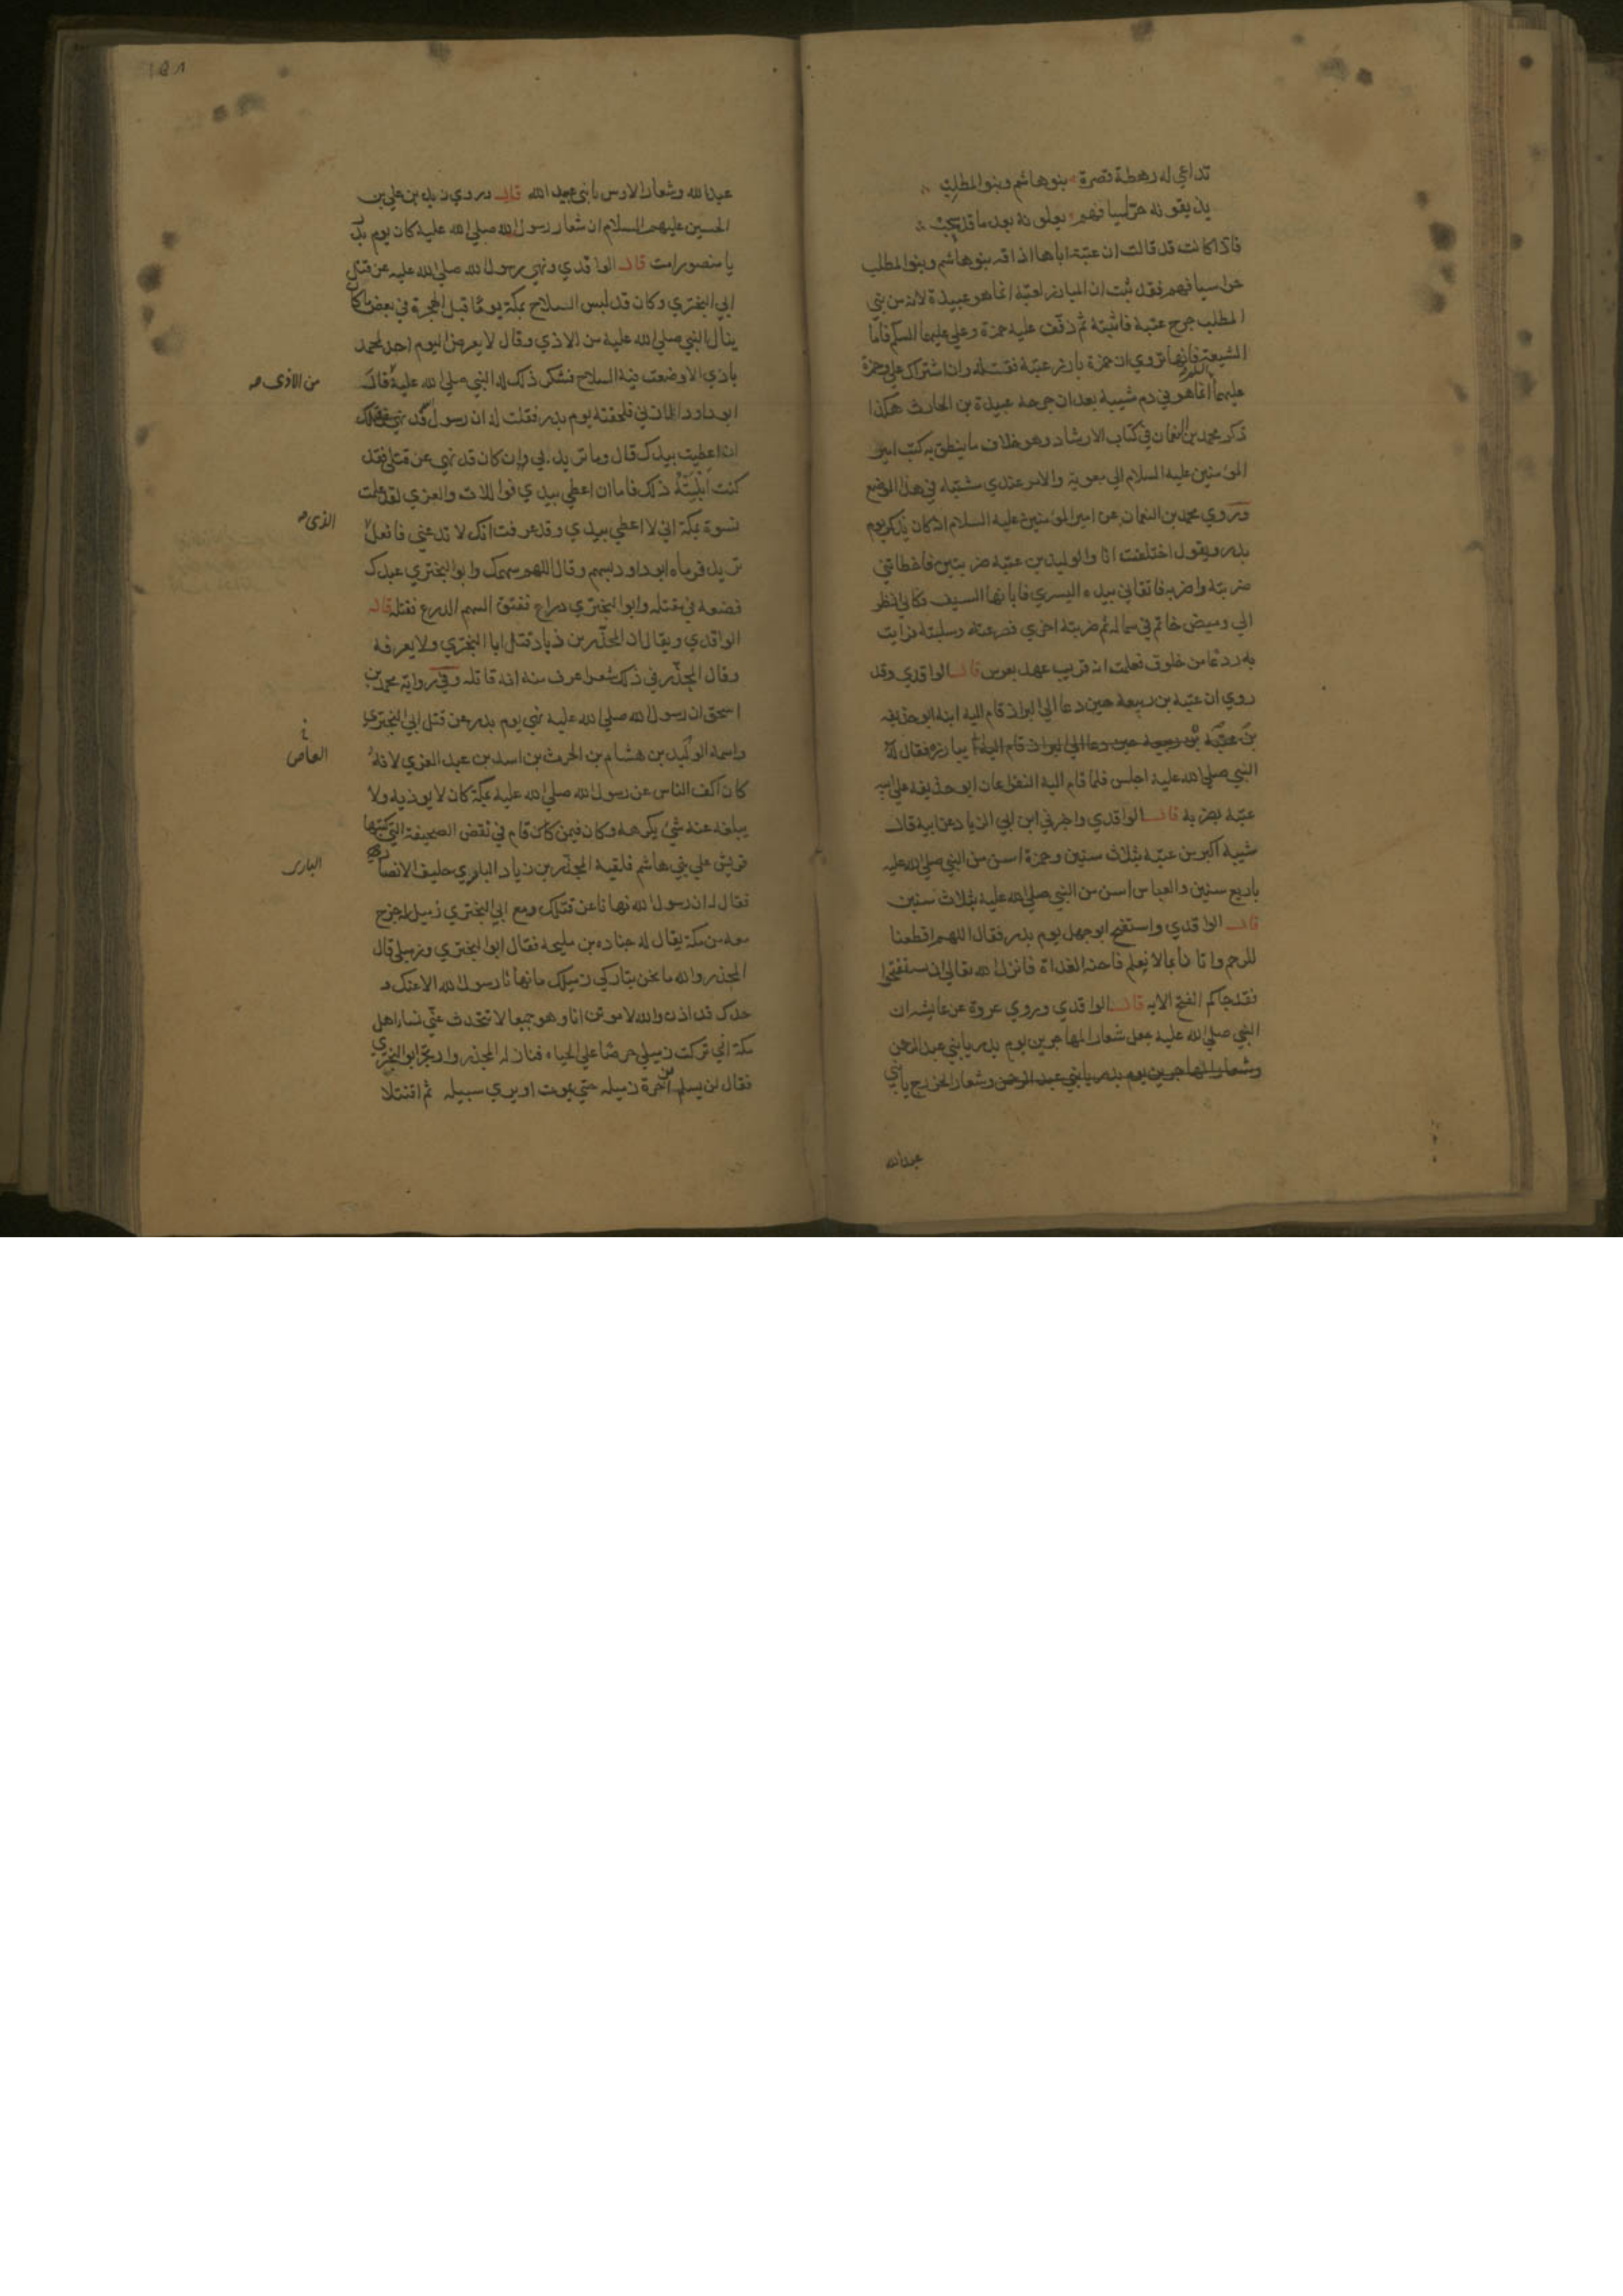 تداعي له رهطة قصرة بنو هاشم وبنو المطلب
يذيقونه حر اسيافهم يعلونه بعد ما قد
فاذا كانت قد قالت ان عتبة اباها اذاقه بنو هاشم وبنو المطلب
حر اسيافهم فقد ثبت ان المبارز لعتبة انما هو عبيدة لانه من بني
المطلب جرح عتبة فاثبته ثم ذفف عليه حمزة وعلي عليهما السلم فاما
الشيعة فانها تروي ان حمزة بارز عتبة فقتله وان اشتراك علي وحمزة
عليهما السلام انما هو في دم شيبة بعد ان جرحه عبيدة بن الحارث هكذا
ذكر محمد بن النعمان في كتاب الارشاد وهو خلاف ما ينطق به كتب امير
المؤمنين عليه السلام الي معوية والامر عندي مشتبه في هذا الموضع
وروي محمد بن النعمان عن امير المؤمنين عليه السلام انه كان يذكر يوم
بدر ويقول اختلفت انا والوليد بن عتبة ضربتين فاخطاتني
ضربته واضربه فاتقاني بيده اليسري فابانها السيف فكاني انظر
الي وميض خاتم في شماله ثم ضربته اخري فصرعته وسلبته فرايت
به ردعا من خلوق فعلمت انه قريب عهد بعرس قال الواقدي وقد
روي ان عتبة بن ربيعة حين دعا الي البراز قام اليه ابنه ابو حذيفه
بن عتبة بن ربيعة حين دعا الي البراز قام اليه يبارزه فقال له
النبي صلي الله عليه اجلس فلما قام اليه النفر اعان ابو حذيفه علي ابيه
عتبة بضربة قال الواقدي واخبرني ابن ابي الزياد عن ابيه قال
شيبة اكبر من عتبة بثلاث سنين وحمزة اسن من النبي صلي الله عليه
باربع سنين والعباس اسن من النبي صلي الله عليه بثلاث سنين
قال الواقدي واستفتح ابو جهل يوم بدر فقال اللهم اقطعنا
للرحم واتانا بما لا نعلم فاحنه الغداة فانزل الله تعالي ان تستفتحوا
فقد جاكم الفتح الايه قال الواقدي وروي عروة عن عايشه ان
النبي صلي الله عليه جعل شعار المهاجرين يوم بدر يا بني عبد الرحمن
وشعار المهاجرين يوم بدر يا بني عبد الرحمن وشعار الخزرج يا بني
عبد الله
عبد الله وشعار الاوس يا بني عبيد الله قال وروي زيد بن علي بن
الحسين عليهم السلام ان شعار رسول الله صلي الله عليه كان يوم بدر
يا منصور امت قال الواقدي ونهي رسول الله صلي الله عليه عن قتل
ابي البختري وكان قد لبس السلاح بمكة يوما قبل الهجرة في بعض ما كان
ينال النبي صلي الله عليه من الاذي وقال لا يعرض اليوم احد لمحمد
باذي الا وضعت فيه السلاح فشكر ذلك له النبي صلي الله عليه قال
من الاذى صه
ابو داود المازني فلحقته يوم بدر فقلت له ان رسول الله قد نهي عن قتلك
ان اعطيت بيدك قال وما تريد الي ان كان قد نهي عن قتلي فقد
كنت ابليته ذلك فاما ان اعطي بيدي فو اللات والعزي لقد علمت
نسوة بمكة اني لا اعطي بيدي وقد عرفت انك لا تدعني فافعل
الذى صه
تريد فرماه ابو داود بسهم وقال اللهم سهمك وابو البختري عبدك
فضعه في مقتله وابو البختري دراع ففتق السهم الدرع فقتله قال
الواقدي ويقال ان المجذر بن ذياد قتل ابا البختري ولا يعرفه
وقال المجذر في ذلك شعرا عرف منه انه قاتله وفي رواية محمد بن
اسحق ان رسول الله صلي الله عليه نهي يوم بدر عن قتل ابي البختري
واسمه الوليد بن هشام بن الحرث بن اسد بن عبد العزي لانه
العاص
كان اكف الناس عن رسول الله صلي الله عليه بمكة كان لا يوذيه ولا
يبلغه عنه شئ يكرهه وكان فيمن قام في نقض الصحيفة التي كتبها
قريش علي بني هاشم فلقيه المجذر بن زياد البلوي حليف الانصار
البلوى
فقال له ان رسول الله نهانا عن قتلك ومع ابي البختري زميل له خرج
معه من مكة يقال له جناده بن مليحه فقال ابو البختري وزميلي قال
المجذر والله ما نحن بتاركي زميلك ما نهانا رسول الله الا عنك و
حدك قال اذن والله لاموتن انا وهو جميعا لا تتحدث عني نسا اهل
مكة اني تركت زميلي حرصا علي الحياه فنازله المجذر وارتجز ابو البختري
فقال لن يسلم ابن حرة زميله حتي يموت او يري سبيله ثم اقتتلا